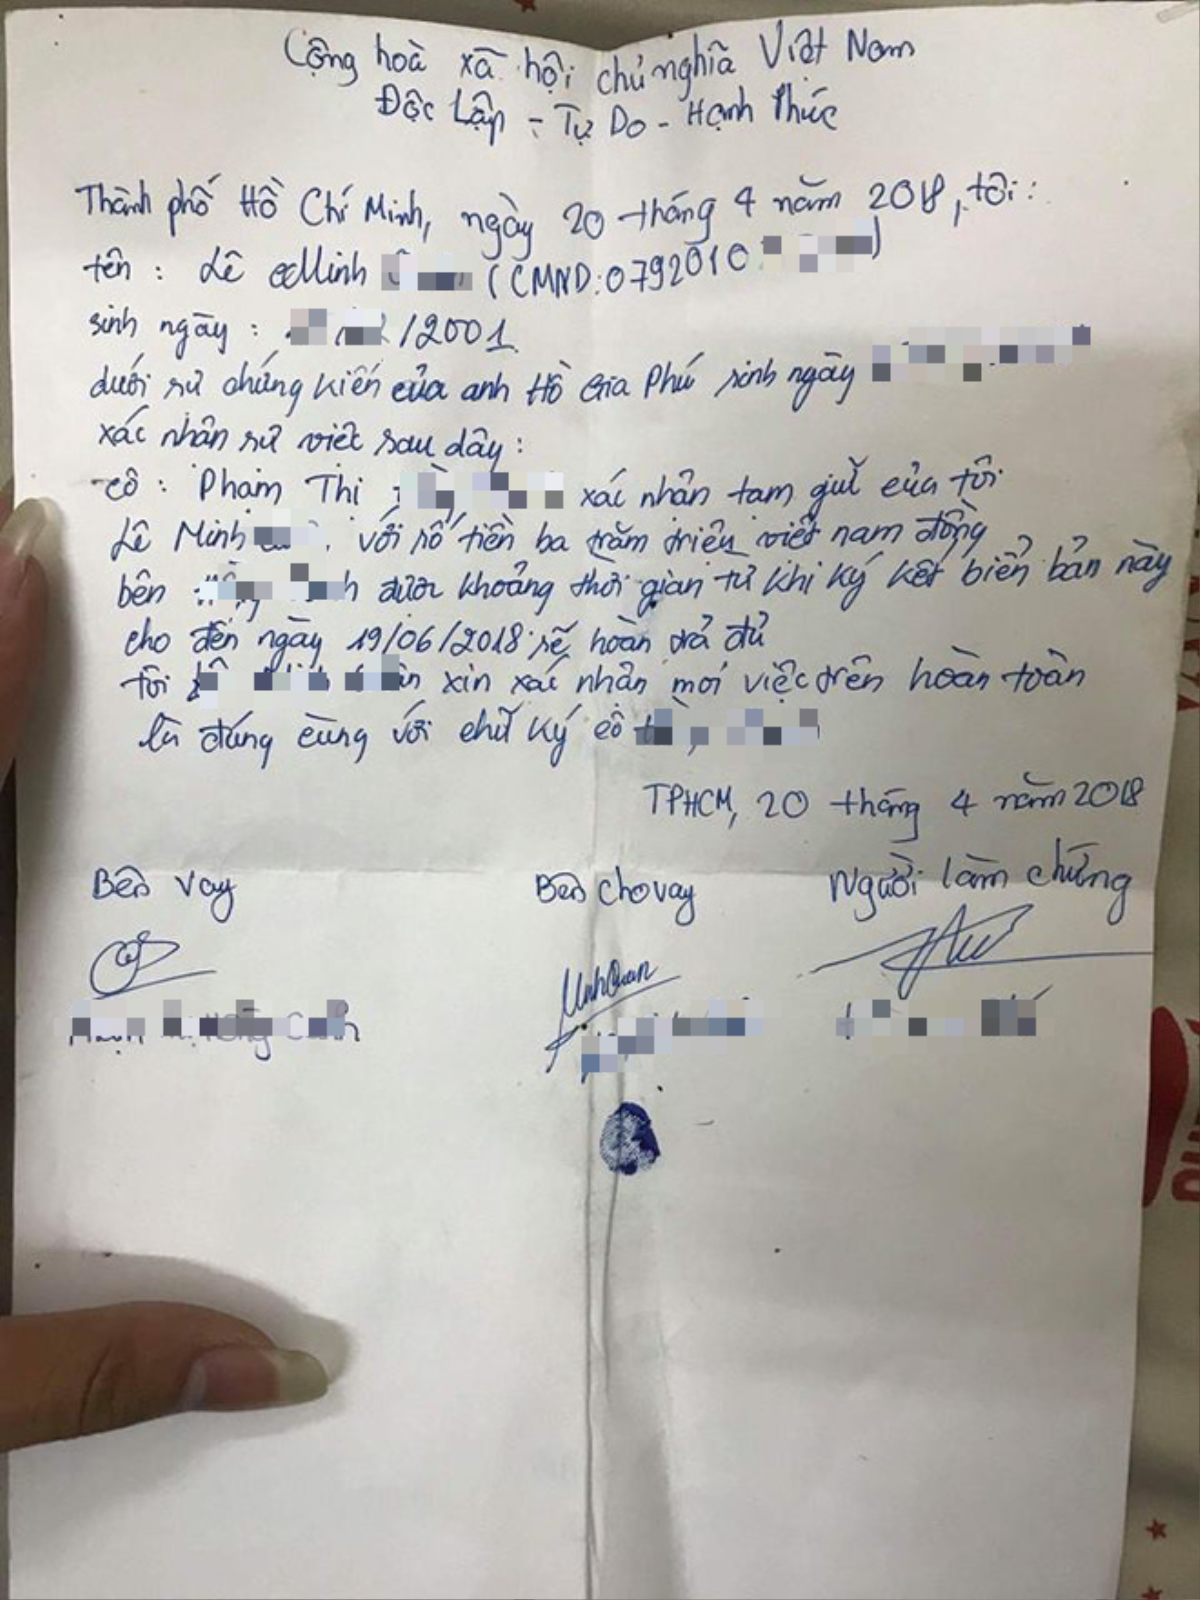 Cộng hoà xã hội chủ nghĩa Việt Nam
Độc Lập - Tự Do - Hạnh Phúc
Thành phố Hồ Chí Minh, ngày 20 tháng 4 năm 2018, tôi:
tên : Lê Minh (CMND:0792010 )
sinh ngày : /2001
dưới sử chứng kiến của anh Hồ Gia Phú sinh ngày
xác nhân sử viêc sau dây:
cô : Phạm Thị xác nhân tam giử của tôi
Lê Minh với số tiền ba trăm triệu viêt nam đồng
bên đươc khoảng thời gian từ khi ký kết biển bản này
cho đến ngày 19/06/2018 sẽ hoàn trả đủ
tôi xin xác nhân moi việc trên hoàn toàn
là đúng cùng với chữ ký cô
TPHCM, 20 tháng 4 năm 2018
Bên vay
Bên cho vay
Người làm chứng
MinhQuan